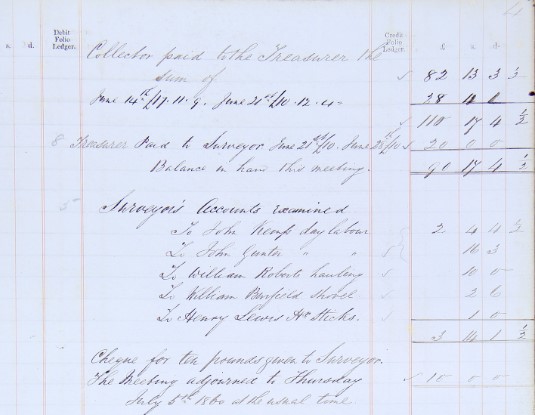 s. d. Debit Folio Ledger. Credit Folio Ledger. £ s. d.
Collector paid to the Treasurer the
sum of 82 13 3 ½
June 14th £17.11.9. June 21st £10.12.4 28 4 1
110 17 4 ½
8 Treasurer Paid to Surveyor June 21st £10. June 28th £10 20 0 0
Balance in hand this meeting. 90 17 4 ½
Surveyor's Accounts examined
To John Kemp day labour 2 4 4 ½
To John Gunter " " 16 3
To William Roberts hauling 10 0
To William Burfield Shovel 2 6
To Henry Lewis Hr Sticks. 1 0
3 14 1 ½
Cheque for ten pounds given to Surveyor.
The Meeting adjourned to Thursday 10 0 0
July 5th 1860 at the usual time.